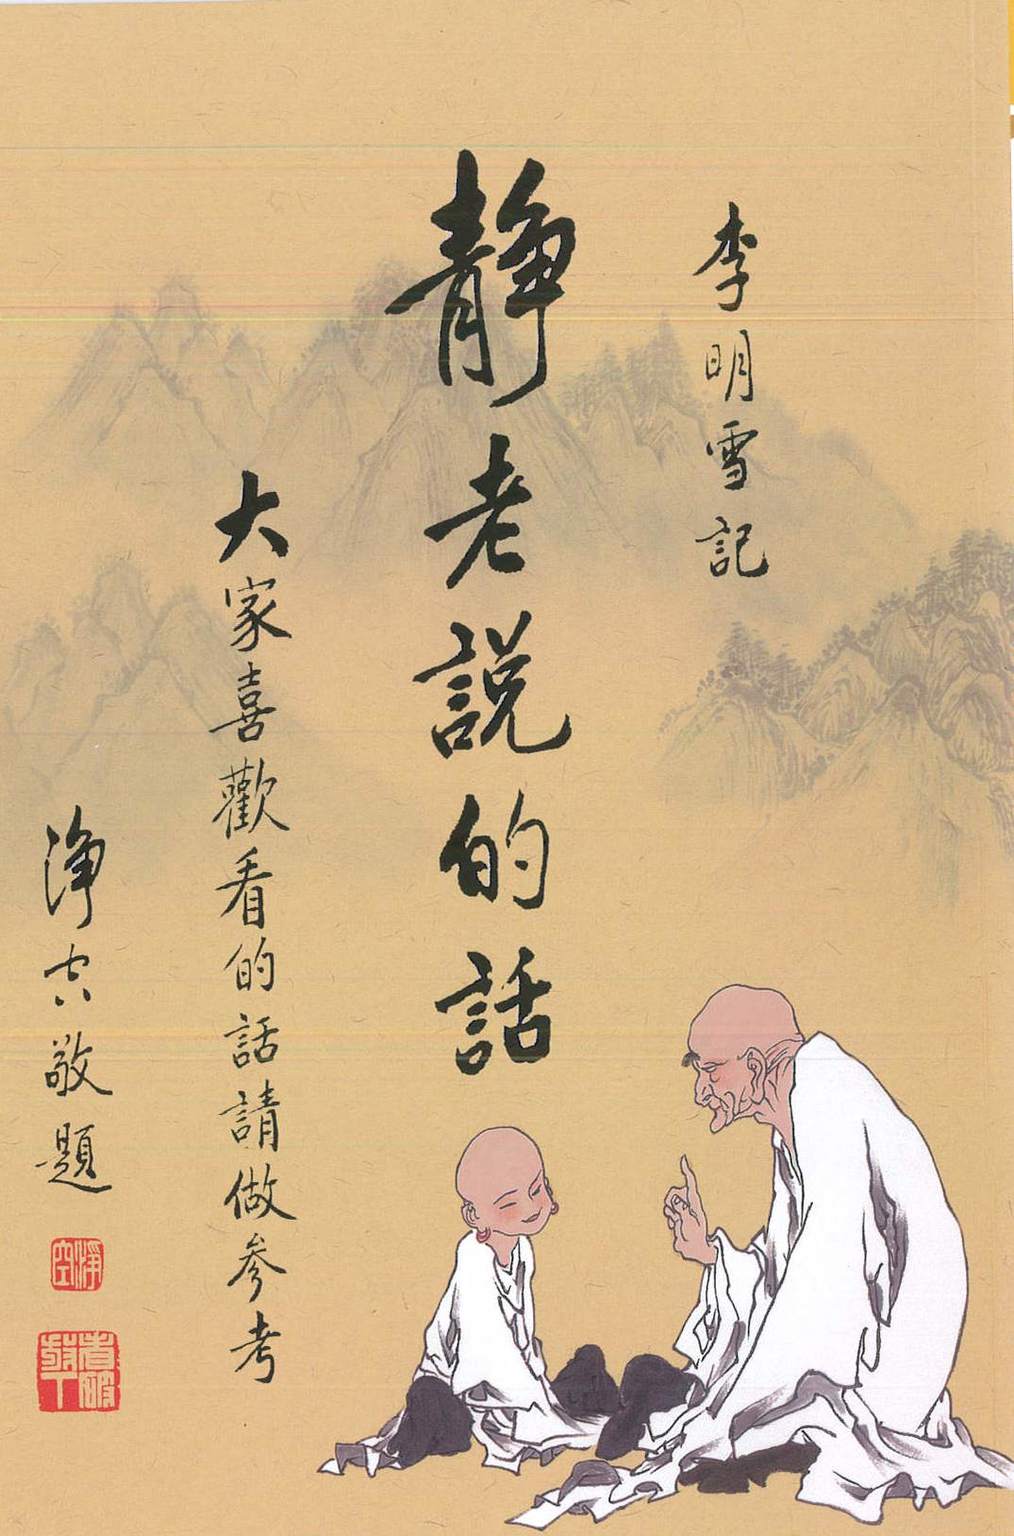 李明雪記
靜老說的話
大家喜歡看的話請做參考
淨空敬題
淨空